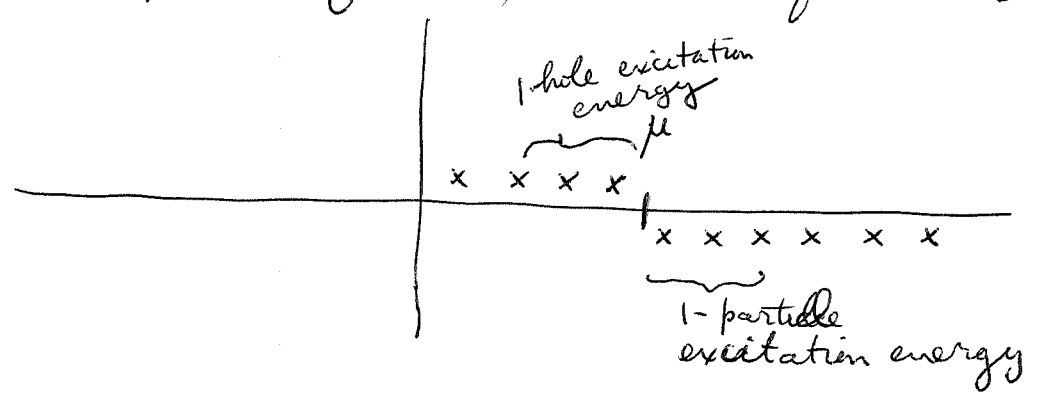 1-hole excitation
energy
μ
x x x x
x x x x x x
1-particle
excitation energy